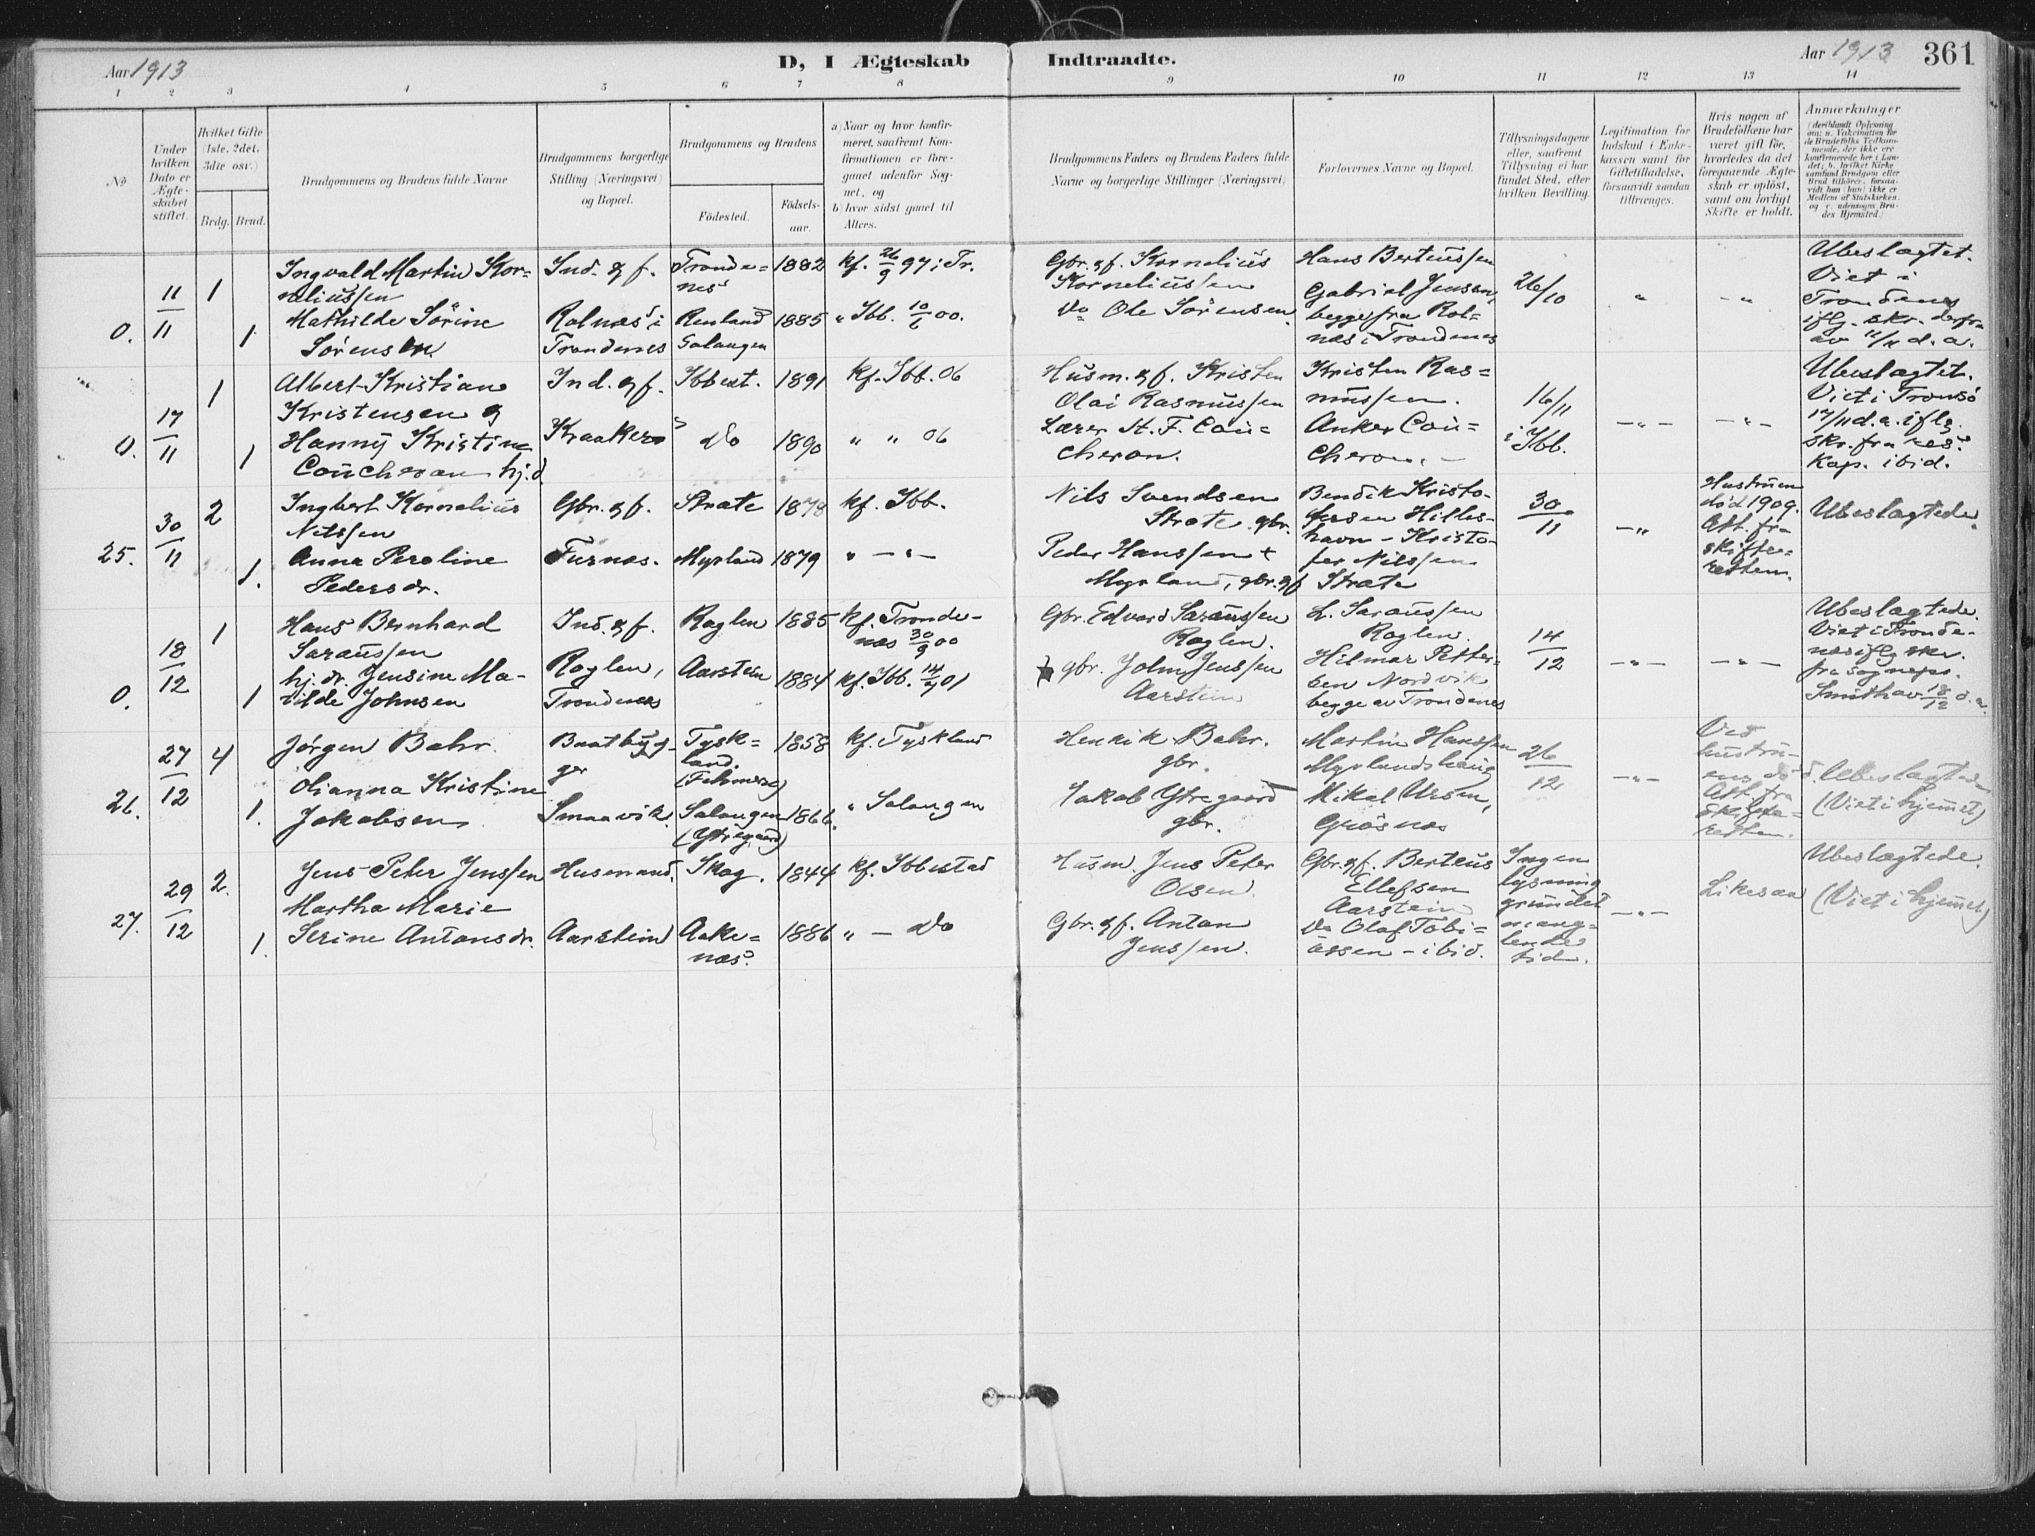 Aar 1913
D, I Ægteskab
Indtraadte.
Aar 1913
361
1 2 3 4 5 6 7 8 9 10 11 12 13 14
No
Under hvilken Dato er Ægteskabet stiftet.
Hvilket Gifte (1ste, 2det, 3die osv.)
Brdg. Brud.
Brudgommens og Brudens fulde Navne
Brudgommens borgerlige Stilling (Næringsvei) og Bopæl.
Brudgommens og Brudens
Fødested.
Fødselsaar.
a) Naar og hvor konfirmeret, saafremt Konfirmationen er foregaaet udenfor Sognet, og
b) hvor sidst gaaet til Alters.
Brudgommens Faders og Brudens Faders fulde Navne og borgerlige Stillinger (Næringsvei)
Forlovernes Navne og Bopæl.
Tillysningsdagene eller, saafremt Tillysning ei har fundet Sted, efter hvilken Bevilling.
Legitimation for Indskud i Enkekassen samt for Giftetilladelse, forsaavidt saadan tiltrænges.
Hvis nogen af Brudefolkene har været gift før, hvorledes da det foregaaende Ægteskab er opløst, samt om lovligt Skifte er holdt.
Anmerkninger
0.
11/11
1
1
Ingvald Martin Kor-
neliussen
Mathilde Sørine
Sørensen
Ind. & f.
Rolnæs i
Trondenes
Tronde-
nes
Renland
Salangen
1882
1885
kf. 26/9 97 i Tr.
" Ibb. 10/6 00.
Gbr. & f. Kornelius
Korneliussen
Do Ole Sørensen
Hans Berteussen
Gabriel Jensen,
begge fra Rol-
næs i Trondenes
26/10
"
- " -
Ubeslægtet.
Viet i
Trondenes
iflg. skr. derfra
av 11/11 d. a.
0.
17/11
1
1
Albert Kristian
Kristensen &
Hanny Kristine
Coucheron hj.d.
Ind. & f.
Kraaker
Ibbest.
Do
1891
1890
kf. Ibb. 06
" " 06
Husm. & f. Kristen
Olai Rasmussen
Lærer St. F. Cou-
cheron.
Kristen Ras-
mussen.
Anker Cou-
cheron.
16/11
i Ibb.
- " -
- " -
Ubeslægtet.
Viet i Tromsø
17/11 d. a. iflg.
skr. fra res.
Kap. ibid.
25.
30/11
2
1.
Ingbert Kornelius
Nilssen
Anna Peroline
Pedersdr.
Gbr. & f.
Furnæs.
Stræte
Myrland
1878
1879
kf. Ibb.
" - " -
Nils Svendsen
Stræte gbr.
Peder Hanssen +
Myrland, gbr. & f
Bendik Kristo-
fersen Hilles-
havn - Kristo-
fer Nilssen
Stræte
30/11
- "
Hustruen
død 1909.
Att. fra
skifte-
retten.
Ubeslægtede.
0.
18/12
1
1
Hans Bernhard
Saraussen
hj. dr. Jensine Ma-
tilde Johnsen
Ind. & f.
Roglen,
Trondenes
Roglen
Aarstein
1885
1884
kf. Tronde-
næs 30/9 00
kf. Ibb. 14/7 01
Gbr. Edvard Saraussen
Roglen.
gbr. John Jenssen
Aarstein
L. Saraussen
Roglen.
Hilmar Petter-
sen Nordvik
begge av Trondenes
14/12
- " -
- " -
Ubeslægtede.
Viet i Tronde-
næs iflg. skr.
fra sognepr.
Smith av 18/12 d. a.
26.
27/12
4
1.
Jørgen Bahr.
Olianna Kristine
Jakobsen
Baatbyg-
ger
Smaavik.
Tysk-
land.
Salangen
(Ytregaard)
1858
1866.
kf. Tyskland
" Salangen
Henrik Bahr.
gbr.
Jakob Ytregaard
gbr.
Martin Hanssen
Myrlandshaug
Mikal Ursen,
Grøsnæs
26/12
- " -
Ved
hustru-
ens død
Att. fra
Skifte-
retten.
Ubeslægtede
(Viet i hjemmet)
27.
29/12
2.
1.
Jens-Peter Jenssen
Martha Marie
Serine Antonsdr.
Husmand.
Aarstein
Skog.
Aake-
næs.
1844
1886
kf. Ibbestad
" - Do
Husm. Jens Peter
Olsen.
Gbr. & f. Anton
Jenssen.
Gbr. & f. Berteus
Ellefsen
Aarstein
Do Olaf Tobi-
assen - ibid.
Ingen
lysning
grundet
mang-
lende
tid.
- " -
Likesaa
Ubeslægtede.
(Viet i hjemmet)